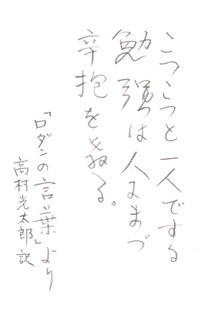 こつこつと一人でする
勉强は人にまづ
辛抱を教へる。
「ロダンの言葉」より
高村光太郎訳